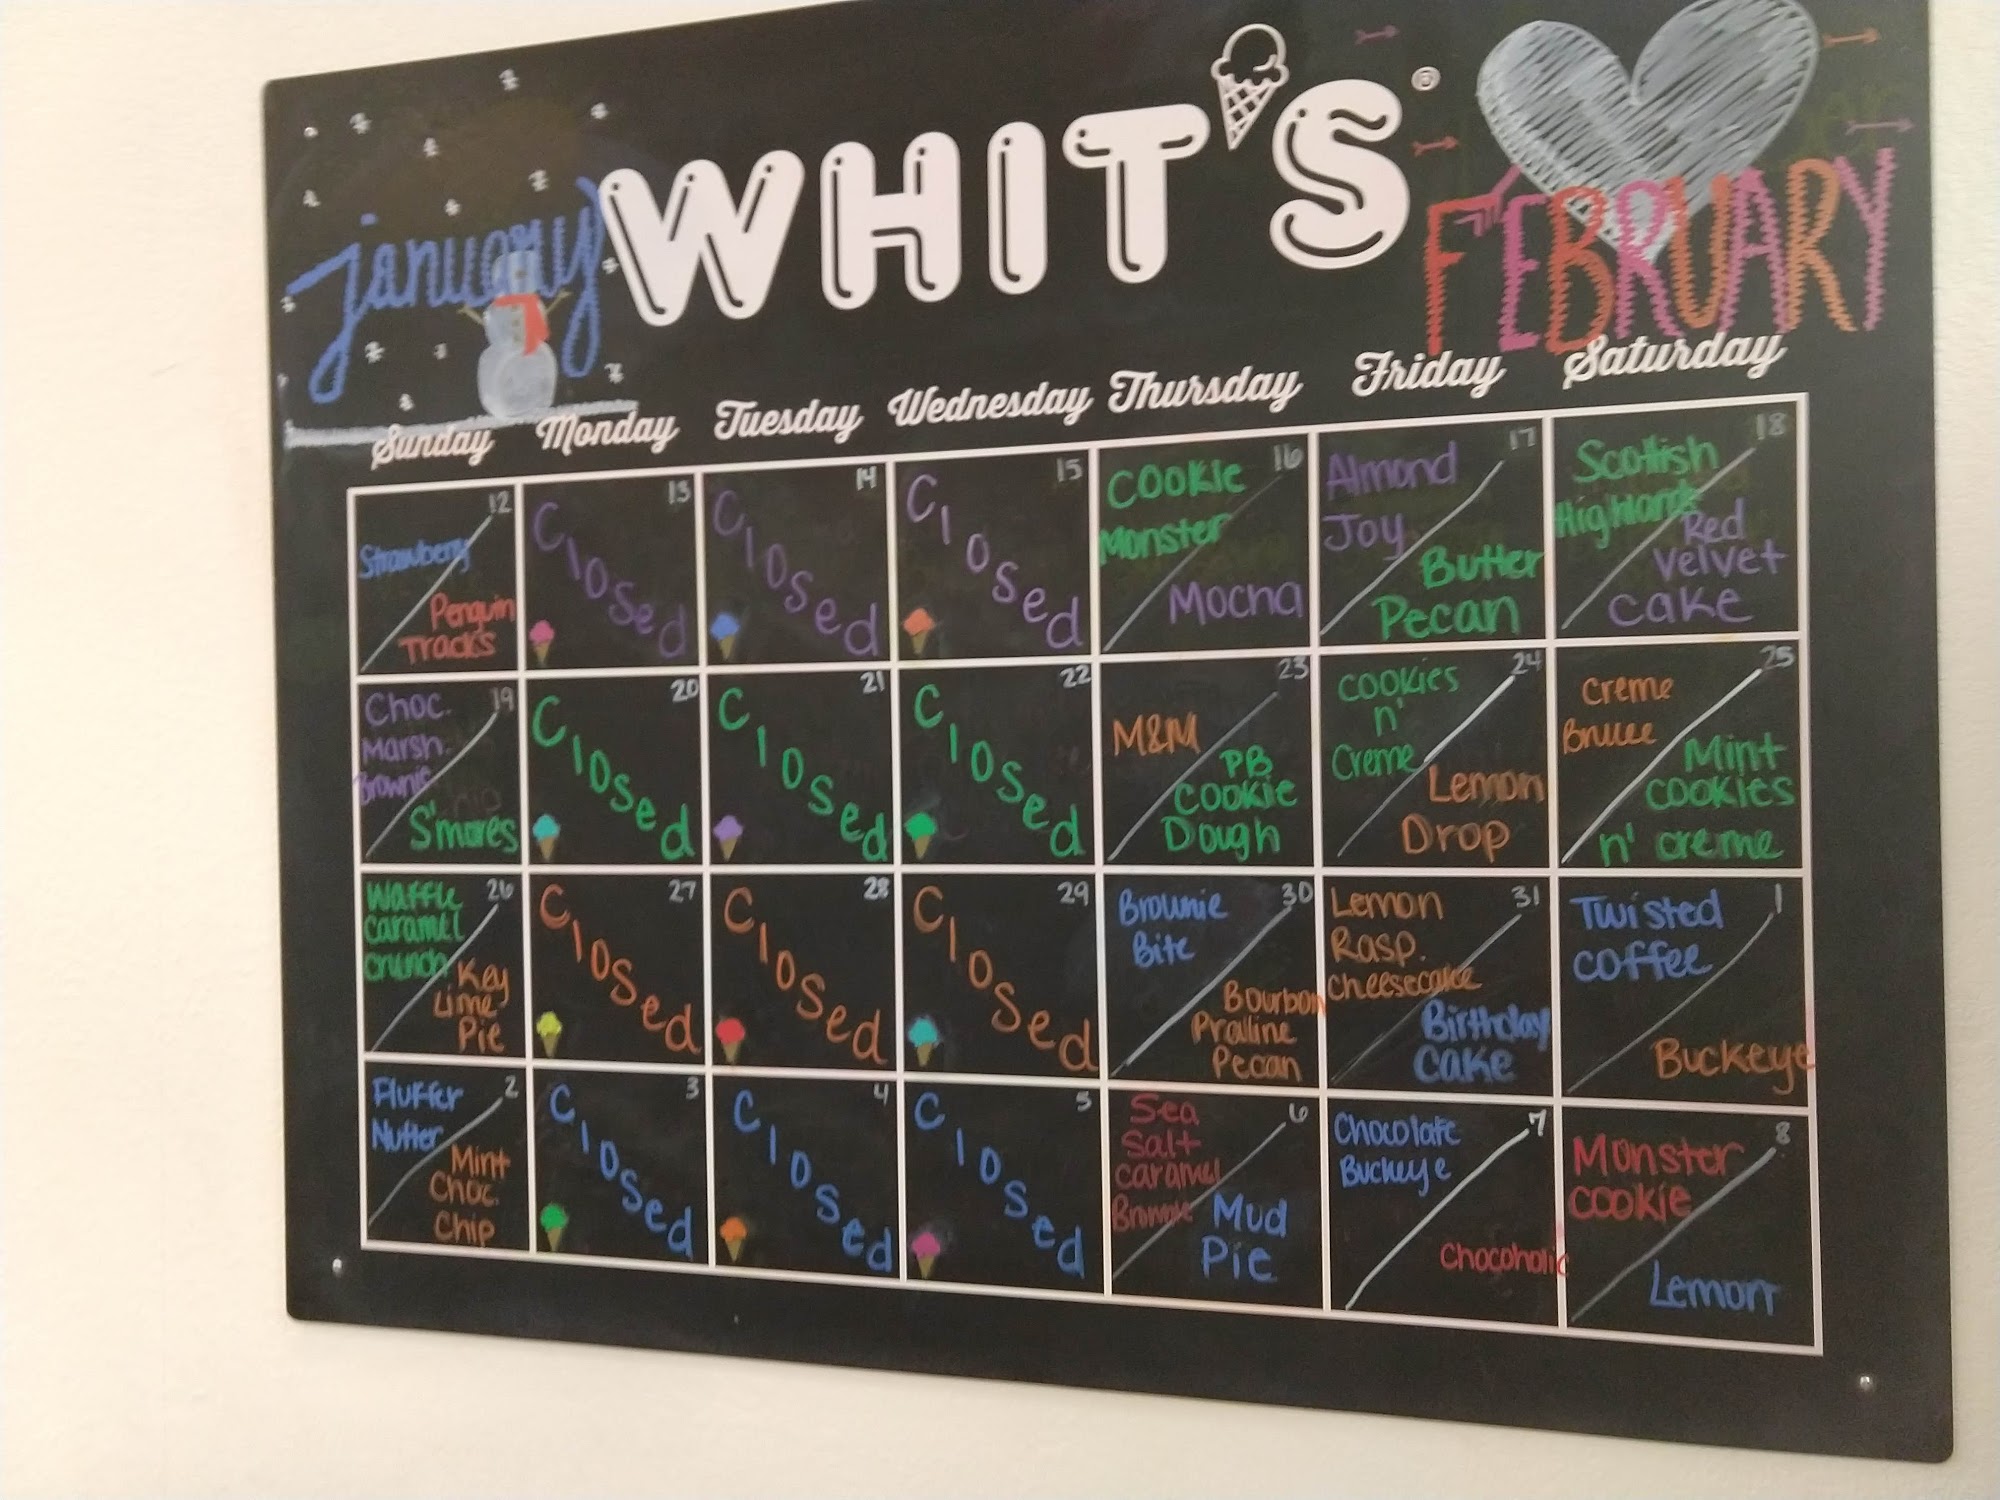 january
WHIT'S®
FEBRUARY
Sunday Monday Tuesday Wednesday Thursday Friday Saturday
12
Strawberry
Penguin
Tracks
13
Closed
14
Closed
15
Closed
16
Cookie
Monster
Mocha
17
Almond
Joy
Butter
Pecan
18
Scottish
Highlands
Red
Velvet
Cake
19
Choc.
Marsh.
Brownie
S'mores
20
Closed
21
Closed
22
Closed
23
M&M
PB
Cookie
Dough
24
Cookies
n'
Creme
Lemon
Drop
25
Creme
Brulee
Mint
Cookies
n' creme
26
Waffle
Caramel
Crunch
Key
Lime
Pie
27
Closed
28
Closed
29
Closed
30
Brownie
Bite
Bourbon
Praline
Pecan
31
Lemon
Rasp.
Cheesecake
Birthday
Cake
1
Twisted
Coffee
Buckeye
2
Fluffer
Nutter
Mint
Choc.
Chip
3
Closed
4
Closed
5
Closed
6
Sea
Salt
Caramel
Brownie
Mud
Pie
7
Chocolate
Buckeye
Chocoholic
8
Monster
Cookie
Lemon